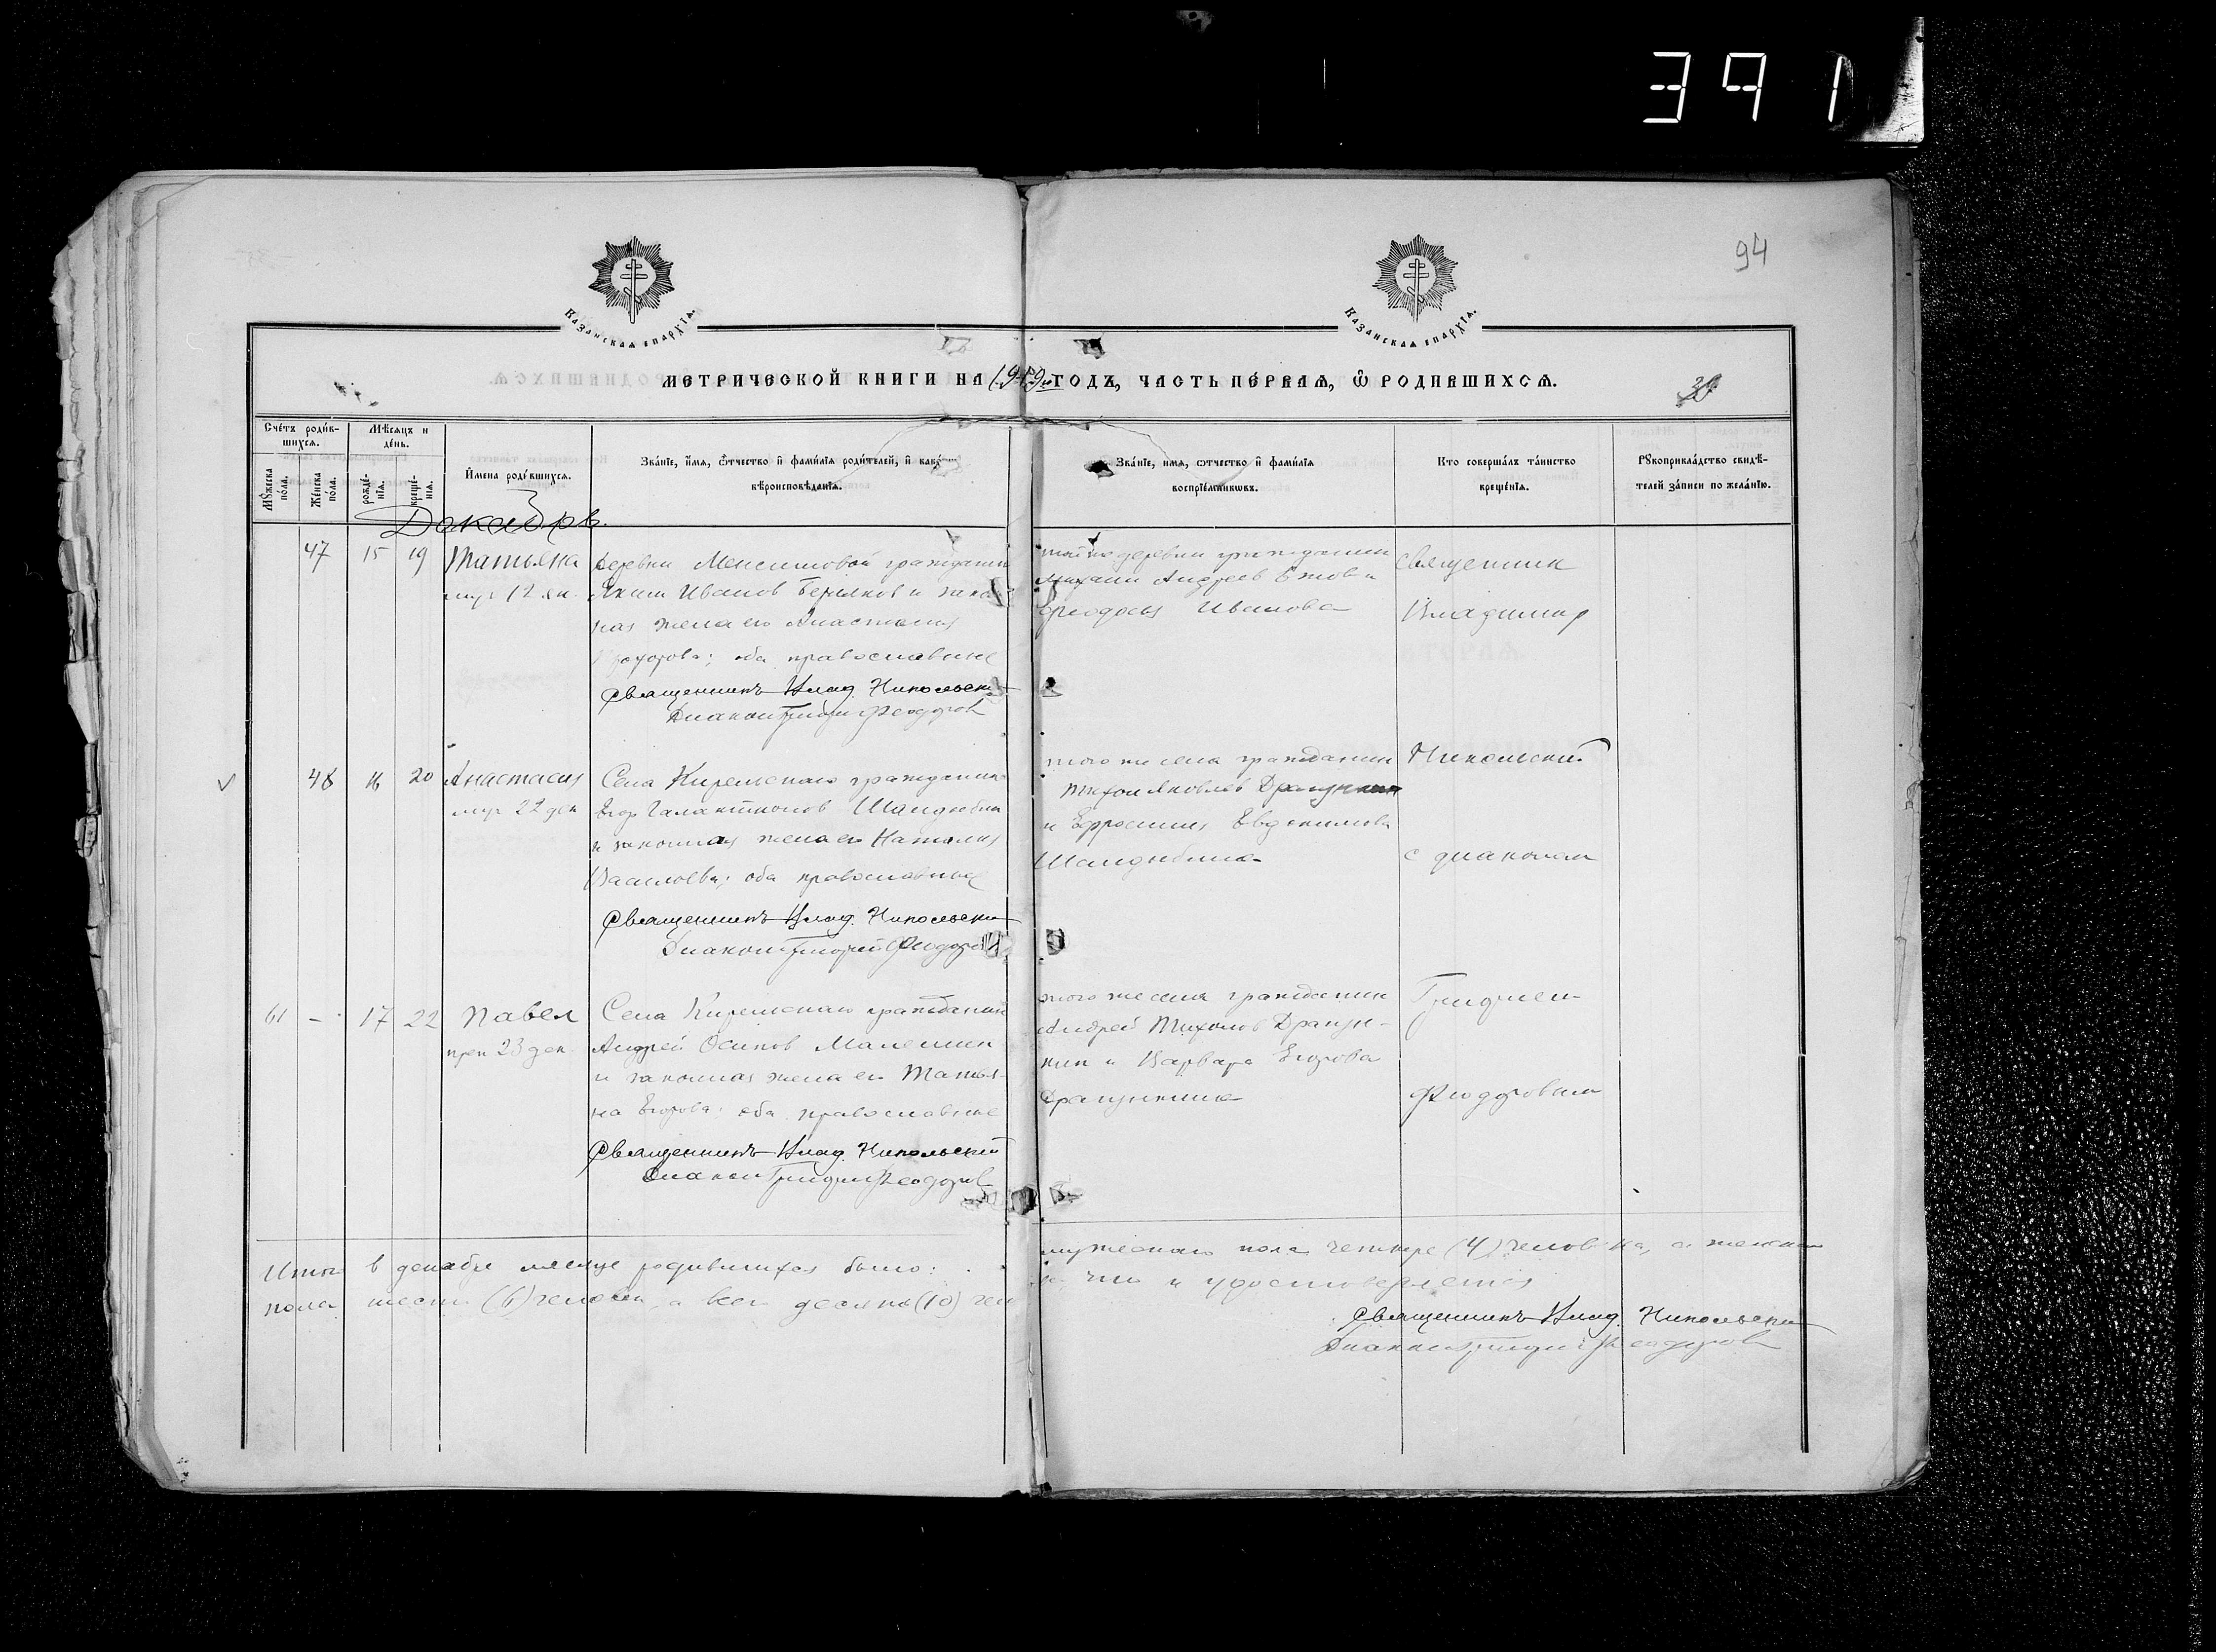 391
94
Казанскаѧ епархїѧ.
Казанскаѧ епархїѧ.
МЕТРИЧЕСКОЙ КНИГИ НА 1919 ГОДЪ, ЧАСТЬ ПЕ́РВАѦ, Ѽ РОДИВШИХСѦ.
Сче́тъ роди́в-
шихсѧ.
Мѣ́сѧцъ и
де́нь.
Мꙋ́жеска по́ла.
Же́нска по́ла.
рожде́-
нїѧ.
креще́-
нїѧ.
И҆мена роди́вшихсѧ.
Зва́нїе, и҆́мѧ, ѻ҆́тчество и҆ фами́лїѧ роди́телей, и҆
вѣроисповѣ́данїѧ.
Зва́нїе, имѧ, ѻтчество и҆ фами́лїѧ
воспрїе́мниковъ.
Кто соверша́лъ та́инство
креще́нїѧ.
Рꙋкоприкла́дство свидѣ́-
телей за́писи по жела́нїю.
Декабрь.
47 15 19 Татьяна
муч 12 ян.
деревни гражданин
Иванов и закон
ная жена его Анастасия
Прохорова; оба православные
Священникъ Влад. Никольски
Диакон Григорий Феодоров
той же деревни гражданин
Андреев и
Феодосья Иванова
Священник
Владимир
48 16 20 Анастасия
муч 22 дек
Села Кирельскаго гражданин
Егор Галактионов
и законная жена его Наталия
Васильева; оба православные
Священникъ Влад. Никольски
Диакон Григорий Феодоров
того же села гражданин
Тихон Яковлев Драгункин
и Евфросиния Евдокимова
Никольский
с диаконом
61 - 17 22 Павел
преп 23 дек
Села Кирельскаго гражданин
Андрей Осипов
и законная жена его Татья-
на Егорова; оба православные
Священникъ Влад. Никольский
Диакон Григорий Феодоров
того же села гражданин
Андрей Тихонов Драгун-
кин и Варвара Егорова
Драгункина
Григорием
Феодоровым
Итого в декабре месяце родившихся было: мужескаго пола четыре (4) человека, а женска
пола шесть (6) человек, а всего десять (10) чел что и удостоверяется
Священникъ Влад. Никольски
Диакон Григорий Феодоров